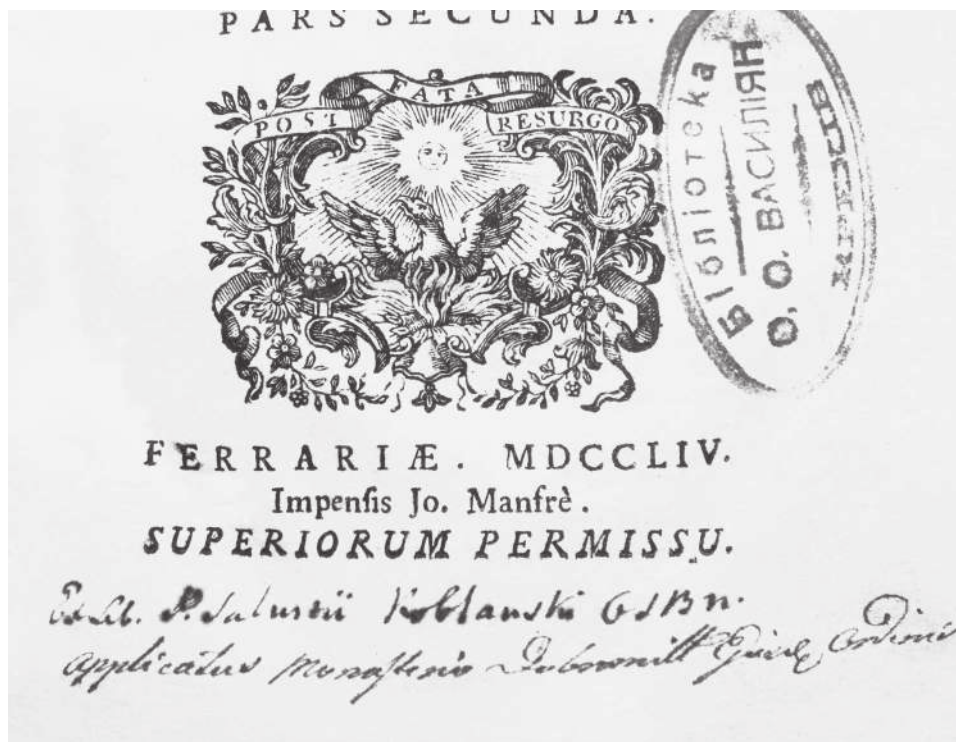 PARS SECUNDA.
POST FATA RESURGO
Бібліотека
О. О. ВАСИЛІЯН
FERRARIÆ. MDCCLIV.
Impenſis Jo. Manfrè.
SUPERIORUM PERMISSU.
Ex Lib. P. Salustii Koblanski OSBn.
applicatus Monasterio ejusd Ordinis